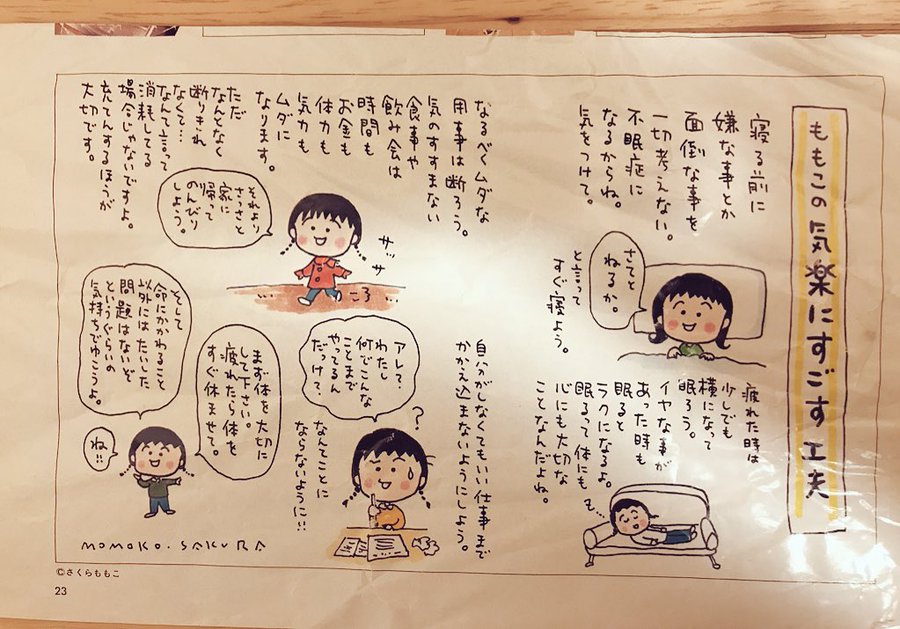 ももこの気楽にすごす工夫
寝る前に
嫌な事とか
面倒な事を
一切考えない。
不眠症に
なるからね。
気をつけて。
さてと
ねるか。
と言って
すぐ寝よう。
疲れた時は
少しでも
横になって
眠ろう。
イヤな事が
あった時も
眠ると
ラクになるよ。
眠るって体にも
心にも大切な
ことなんだよね。
なるべくムダな
用事は断ろう。
気のすすまない
食事や
飲み会は
時間も
お金も
体力も
気力も
ムダに
なります。
ただ
なんとなく
断りきれ
なくて…
なんて言って
消耗してる
場合じゃないですよ。
充てんするほうが
大切です。
サッ
サ
それより
さっさと
家に
帰って
のんびり
しよう。
自分がしなくてもいい仕事まで
かかえ込まないようにしよう。
?
アレ?、
わたし
何でこんな
ことまで
やってるん
だっけ?、
なんてことに
ならないように!!
まず体を大切に
して下さい。
疲れたら体を
すぐ休ませて。
そして
命にかかわること
以外にはたいした
問題はないぞ
というぐらいの
気持ちでゆこうよ。
ね!!
MOMOKO.SAKURA
©さくらももこ
23